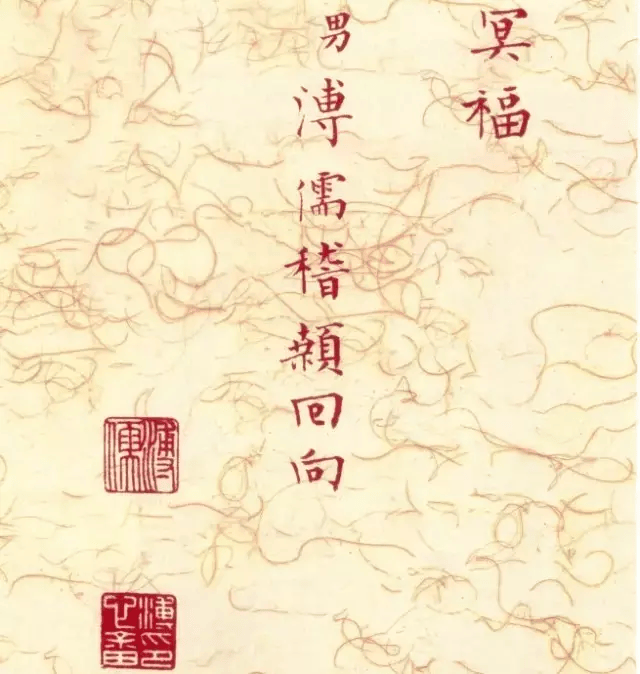 冥福
男溥儒稽顙回向
溥儒
溥印心畬